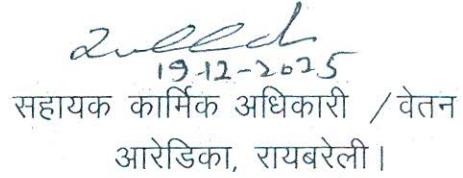 19-12-2025
सहायक कार्मिक अधिकारी / वेतन
आरेडिका, रायबरेली।